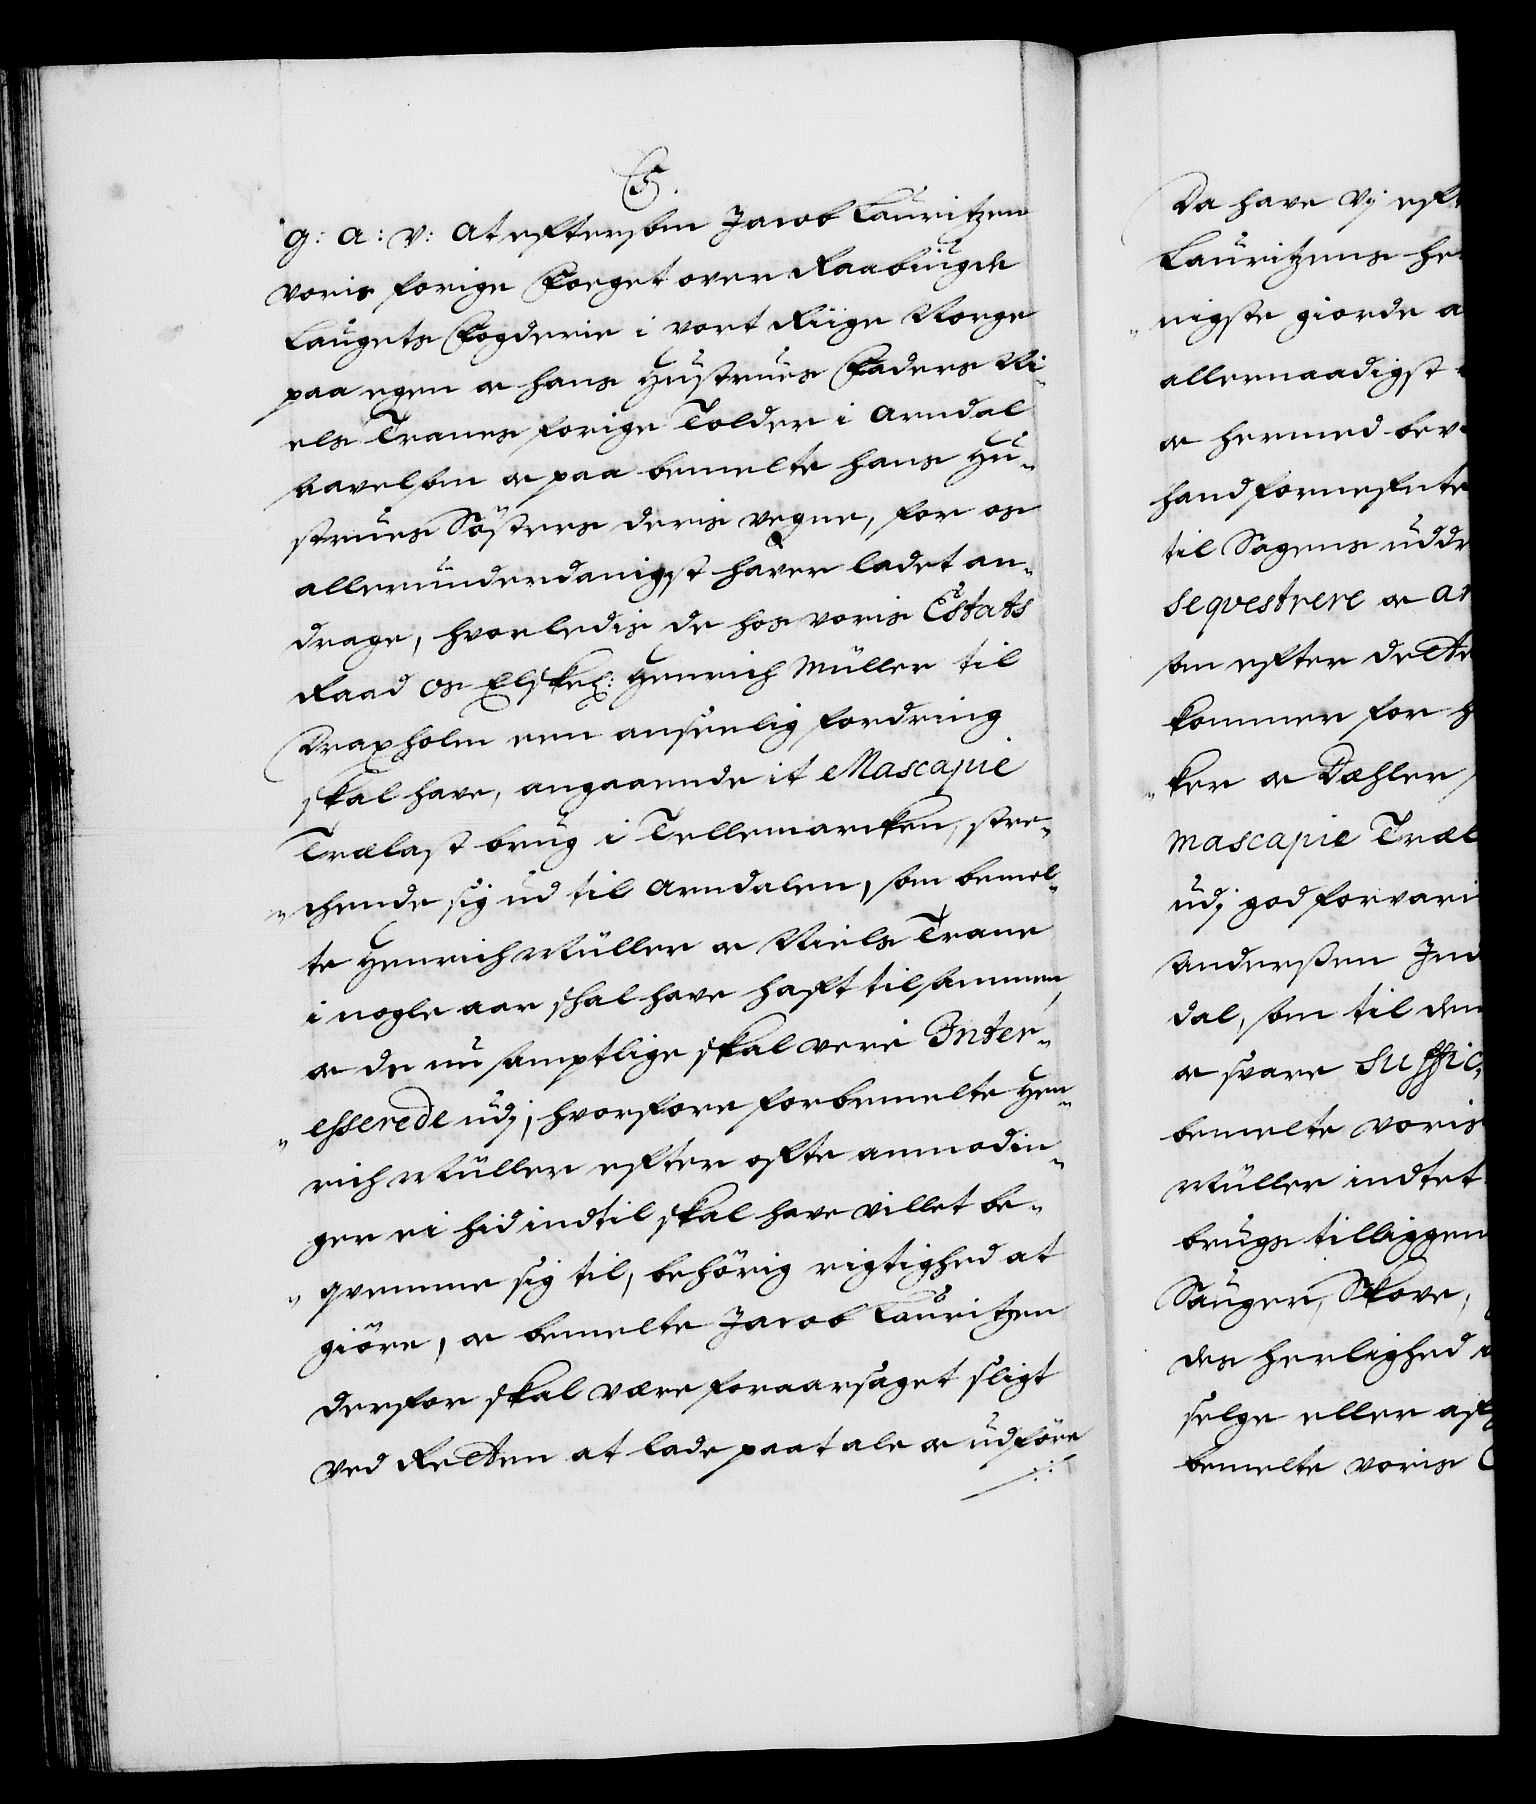 C5.
g: a: v: at eftersom Jacob Lauritzen
voris forige Foeget over Raabiugde
Laugets Fogderie i vort Riige Norge
paa egen oc hans Hustrues Faders Ni¬
els Tranes forige Tolder i Arndal
saavelsom oc paa bemelte hans Hu¬
strues Søsters deris vegne, for os
allerunderdanigst haver ladet an¬
drage, hvorledis de hos voris Estats
Raad Os Elskel: Henrich Müller til
Draxholm een anseenlig fordring
skal have, angaaende it Mascapie
Trælast brug i Tellemarcken, stre¬
ckende sig ud til Arndalen, som bemel¬
te Henrich Müller oc Niels Trane
i nogle aar skal have hafft tilsammen,
oc de nu samptlige skal vere Inter¬
esserede udj, hvorfore forbemelte Hen¬
rich Müller efter ofte anmodin¬
ger ei hid indtil skal have villet be¬
qvemme sig til, behørig rigtighed at
giøre, oc bemelte Jacob Lauritzen
derfor skal være foraarsaget sligt
ved Retten at lade paatale oc udføre
Da have Vj eft
Lauritzens he
nigste giorde a
allernaadigst
oc hermed bev
hand fornefnte
til Sagens uddr
seqvestrere oc ar
som efter dette
kommer for H
ker oc Dehler
mascapie Træl
udj god forvari
Anderssen Ind
dal, som til den
oc svare suffic
bemelte voris
Müller indtet
brugs tilliggen
Sauger, Skove,
des herlighed
selge eller aff
bemelte voris